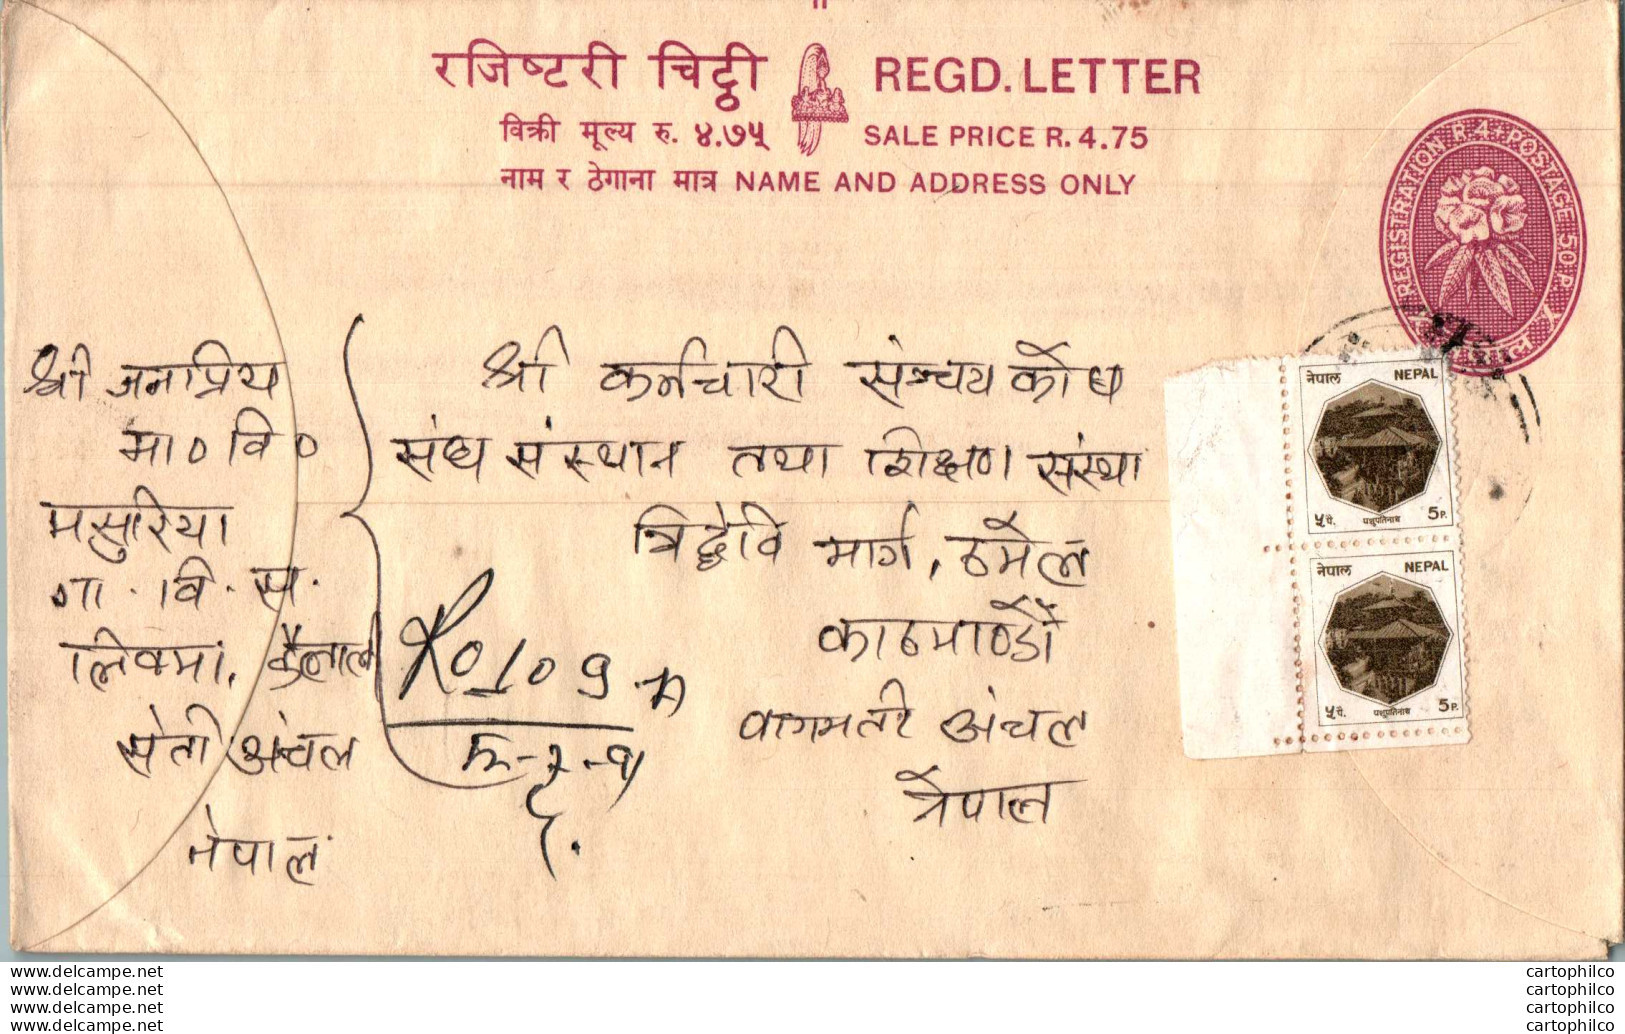 रजिष्टरी चिट्ठी REGD. LETTER
विक्री मूल्य रु. ४.७५ SALE PRICE R. 4.75
नाम र ठेगाना मात्र NAME AND ADDRESS ONLY
REGISTRATION R 4/- POSTAGE 50 P.
श्री जनाप्रिय
मा० वि०
मसुरिया
गा. वि. स.
कैलाली
सेती अंचल
नेपाल
श्री कर्मचारी संञ्चय कोष
संघ संस्थान तथा शिक्षण संस्था
त्रिद्देवि मार्ग, ठमेल
काठमाण्डौ
वागमती अंचल
नेपाल
नेपाल NEPAL
५ पै. पशुपतिनाथ 5 P.
नेपाल NEPAL
५ पै. पशुपतिनाथ 5 P.
www.delcampe.net
www.delcampe.net
www.delcampe.net
www.delcampe.net
cartophilco
cartophilco
cartophilco
cartophilco